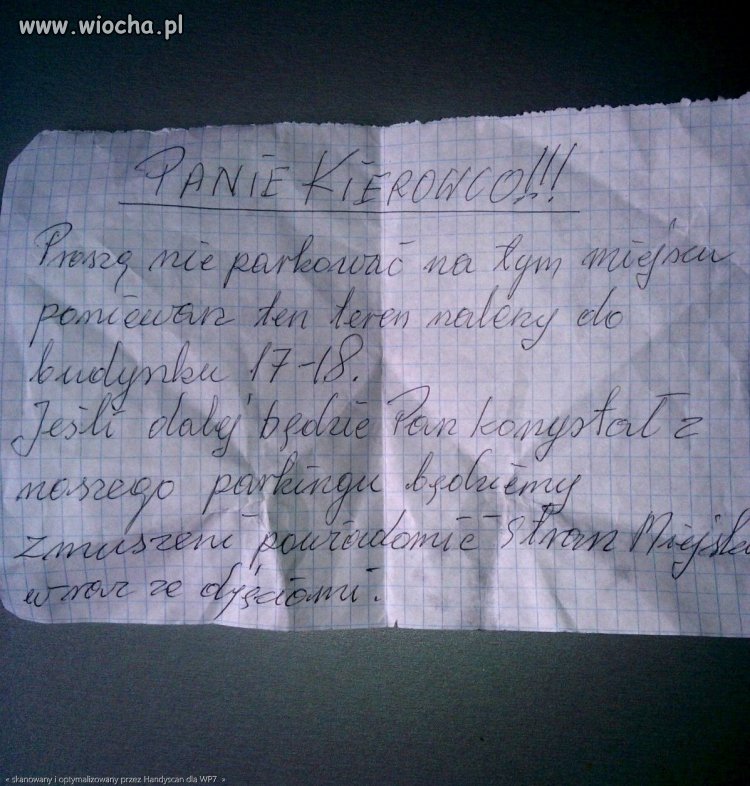 www.wiocha.pl
PANIE KIEROWCO!!!
Proszę nie parkować na tym miejscu
ponieważ ten teren należy do
budynku 17-18.
Jeśli dalej będzie Pan korzystał z
naszego parkingu będziemy
zmuszeni powiadomić Straż Miejską
wraz ze
« skanowany i optymalizowany przez Handyscan dla WP7 »